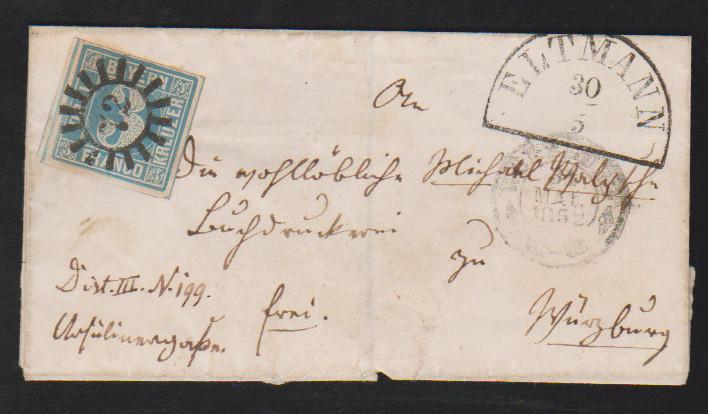 BAYERN
3
KREUZER
FRANCO
ELTMANN
30
5
An
Die wohllöbliche Michael
Buchdruckerei
MAI.
1852
zu
Dist. III. N. 199.
frei.
Würzburg
Ursulinergaße.